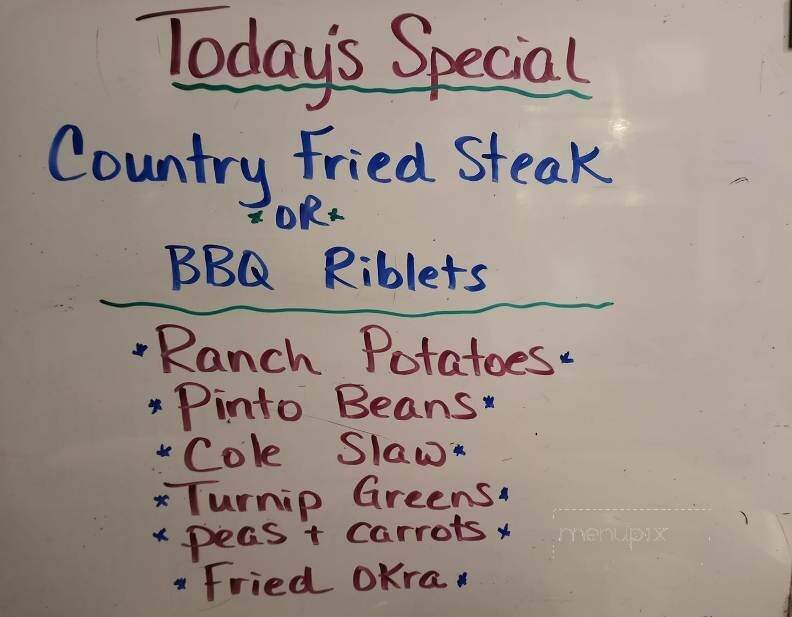 Today's Special
Country Fried Steak
* OR *
BBQ Riblets
* Ranch Potatoes *
* Pinto Beans *
* Cole Slaw *
* Turnip Greens *
* peas + carrots *
* Fried OKra *
menupix